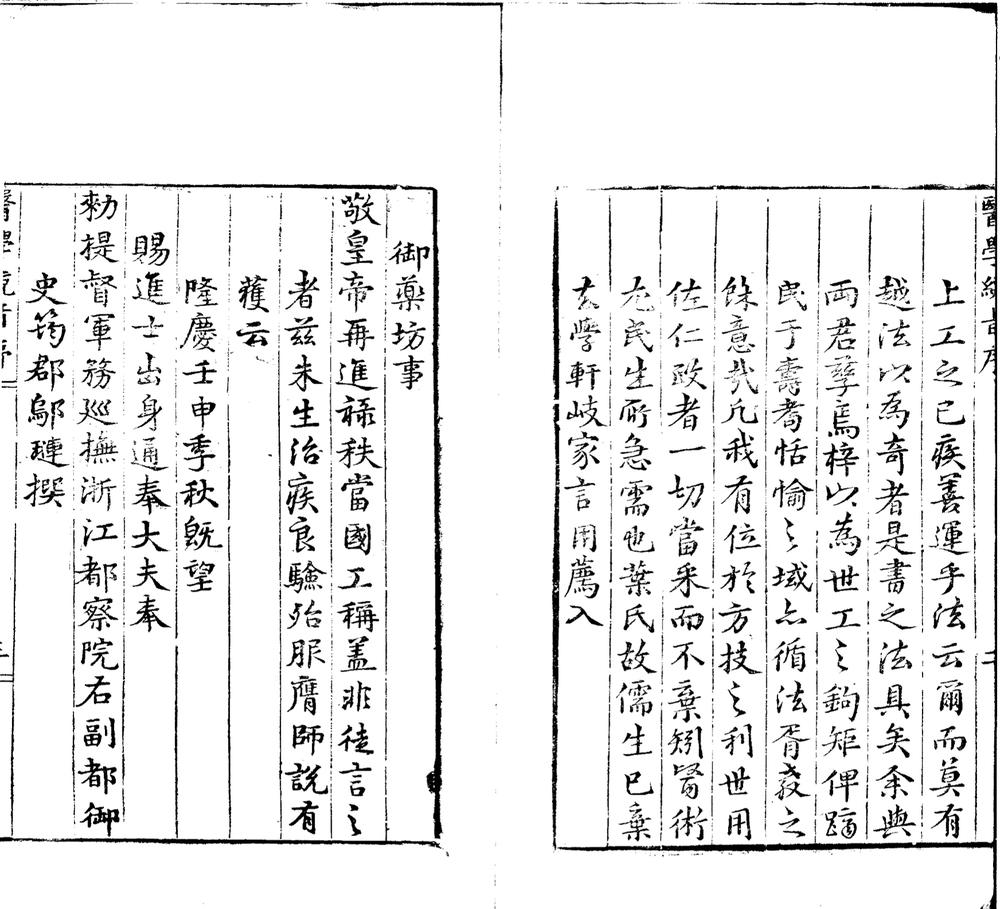 醫學統旨序
二
上工之已疾善運乎法云爾而莫有
越法以為奇者是書之法具矣余與
両君孳焉梓以為世工之鉤矩俾躋
民于壽耇恬愉之域亦循法胥教之
餘意哉凡我有位於方技之利世用
佐仁政者一切當采而不棄矧醫術
尤民生所急需也葉氏故儒生已棄
去學軒岐家言用薦入
御藥坊事
敬皇帝再進祿秩當國工稱蓋非徒言之
者茲朱生治疾良驗殆服膺師說有
獲云
隆慶壬申季秋既望
賜進士出身通奉大夫奉
勑提督軍務巡撫浙江都察院右副都御
史筠郡鄔璉撰
醫學統旨序
三